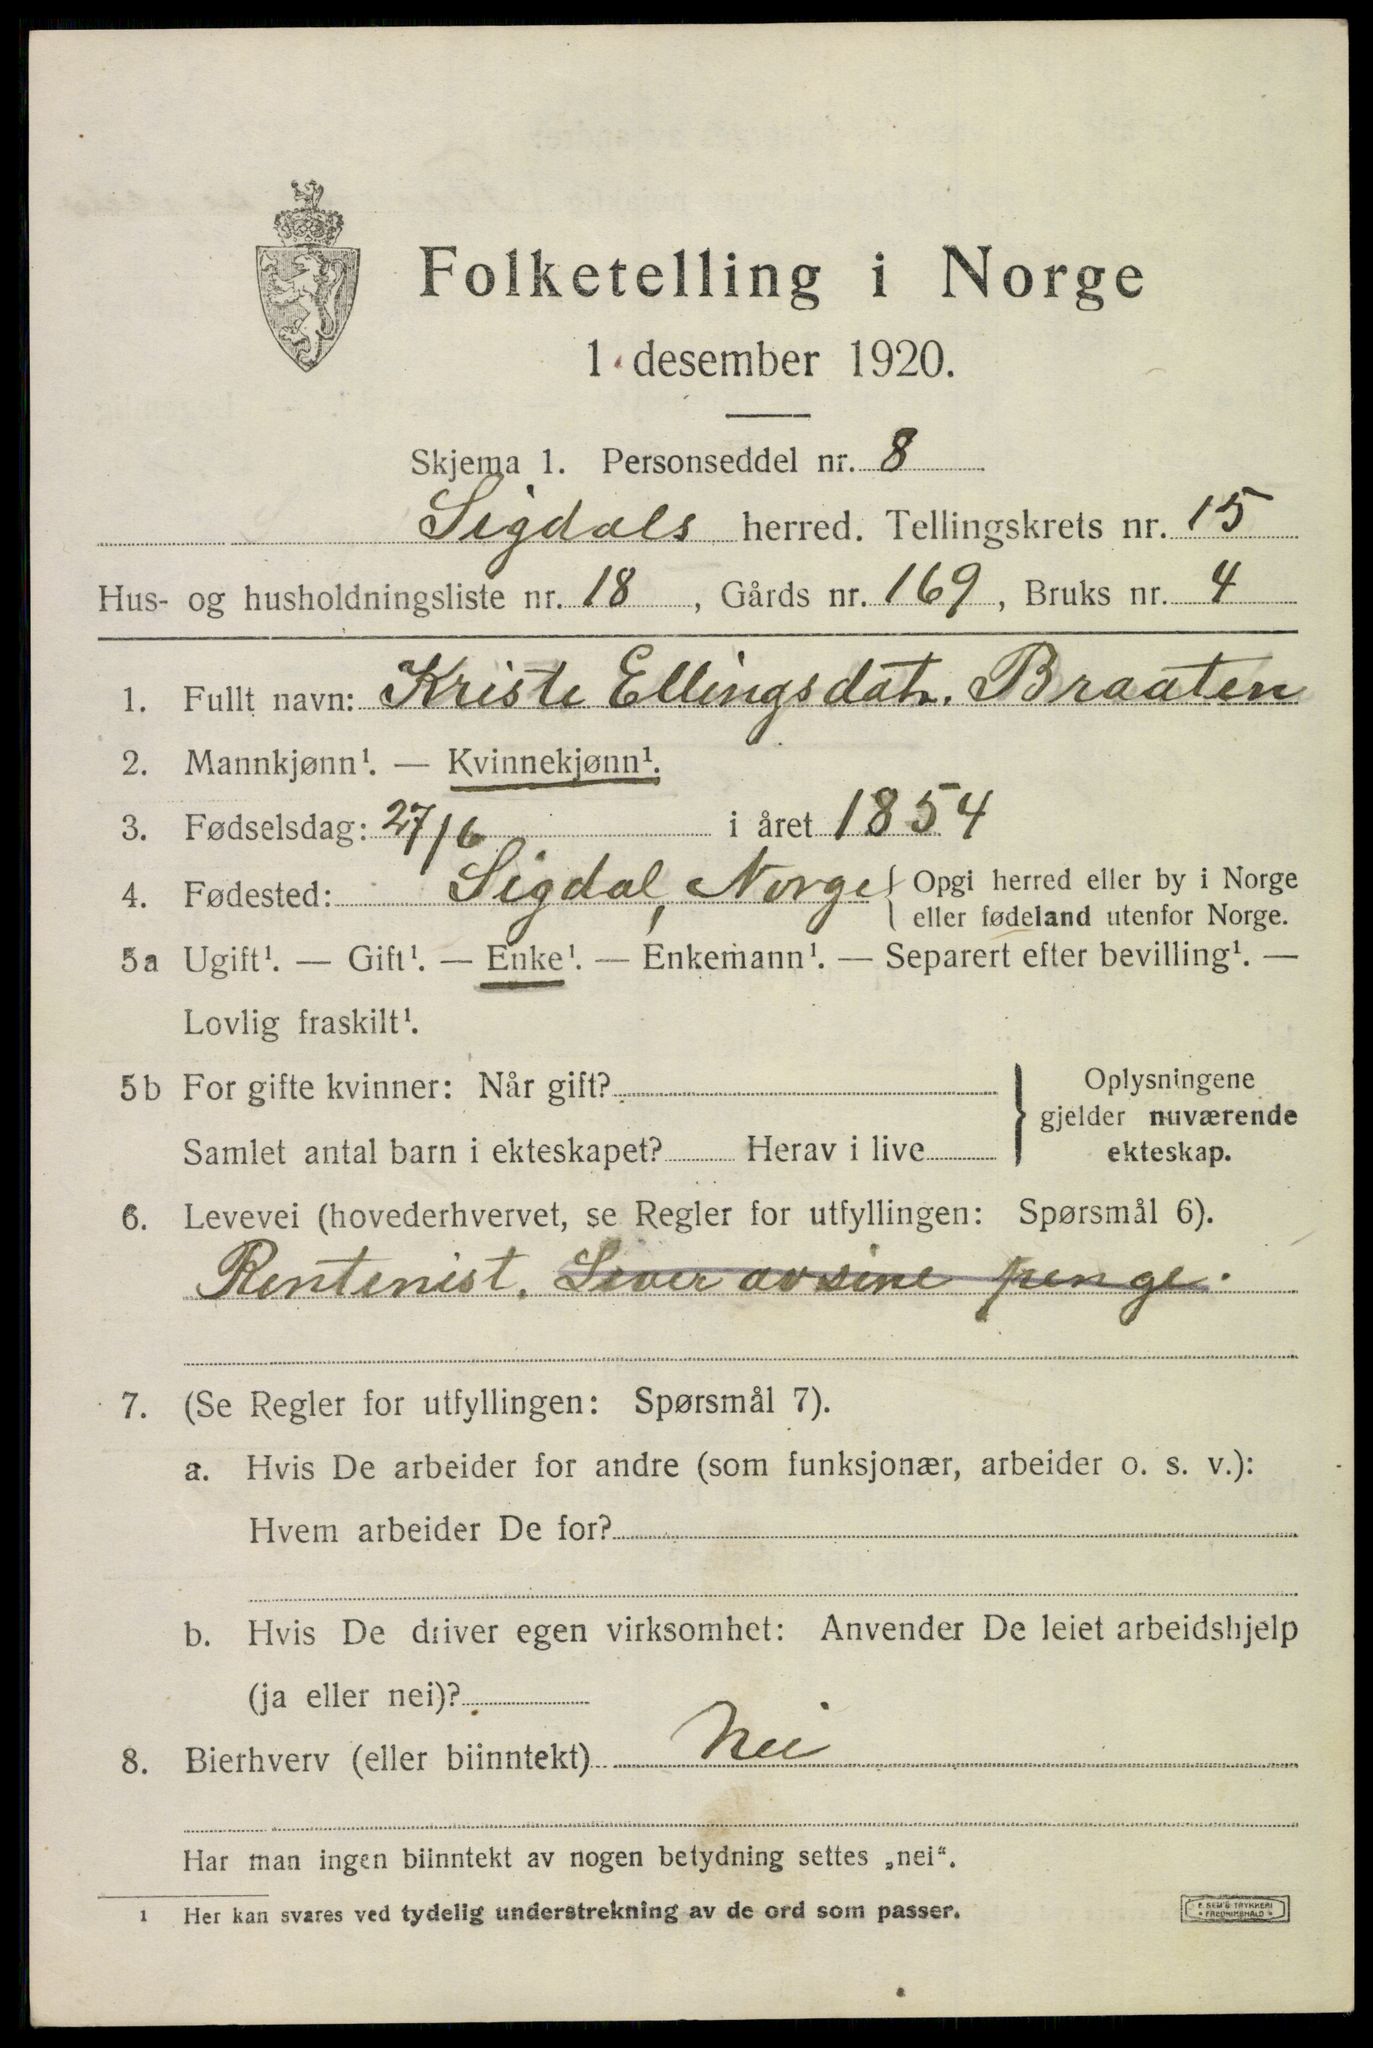 Folketelling i Norge
1 desember 1920.
Skjema 1. Personseddel nr. 8
Sigdals herred. Tellingskrets nr. 15
Hus- og husholdningsliste nr. 18, Gårds nr. 169, Bruks nr. 4
1. Fullt navn: Kriste Ellingsdatr. Braaten
2. Mannkjønn¹. — Kvinnekjønn¹.
3. Fødselsdag: 27/6 i året 1854
4. Fødested: Sigdal, Norge { Opgi herred eller by i Norge
eller fødeland utenfor Norge.
5a Ugift¹. — Gift¹. — Enke¹. — Enkemann¹. — Separert efter bevilling¹. —
Lovlig fraskilt¹.
5b For gifte kvinner: Når gift?
Samlet antal barn i ekteskapet? Herav i live
} Oplysningene
gjelder nuværende
ekteskap.
6. Levevei (hovederhvervet, se Regler for utfyllingen: Spørsmål 6).
Rentenist. Lever av sine penge.
7. (Se Regler for utfyllingen: Spørsmål 7).
a. Hvis De arbeider for andre (som funksjonær, arbeider o. s. v.):
Hvem arbeider De for?
b. Hvis De driver egen virksomhet: Anvender De leiet arbeidshjelp
(ja eller nei)?
8. Bierhverv (eller biinntekt) Nei
Har man ingen biinntekt av nogen betydning settes „nei“.
1 Her kan svares ved tydelig understrekning av de ord som passer.
F. SEM'S TRYKKERI
* FREDRIKSHALD *